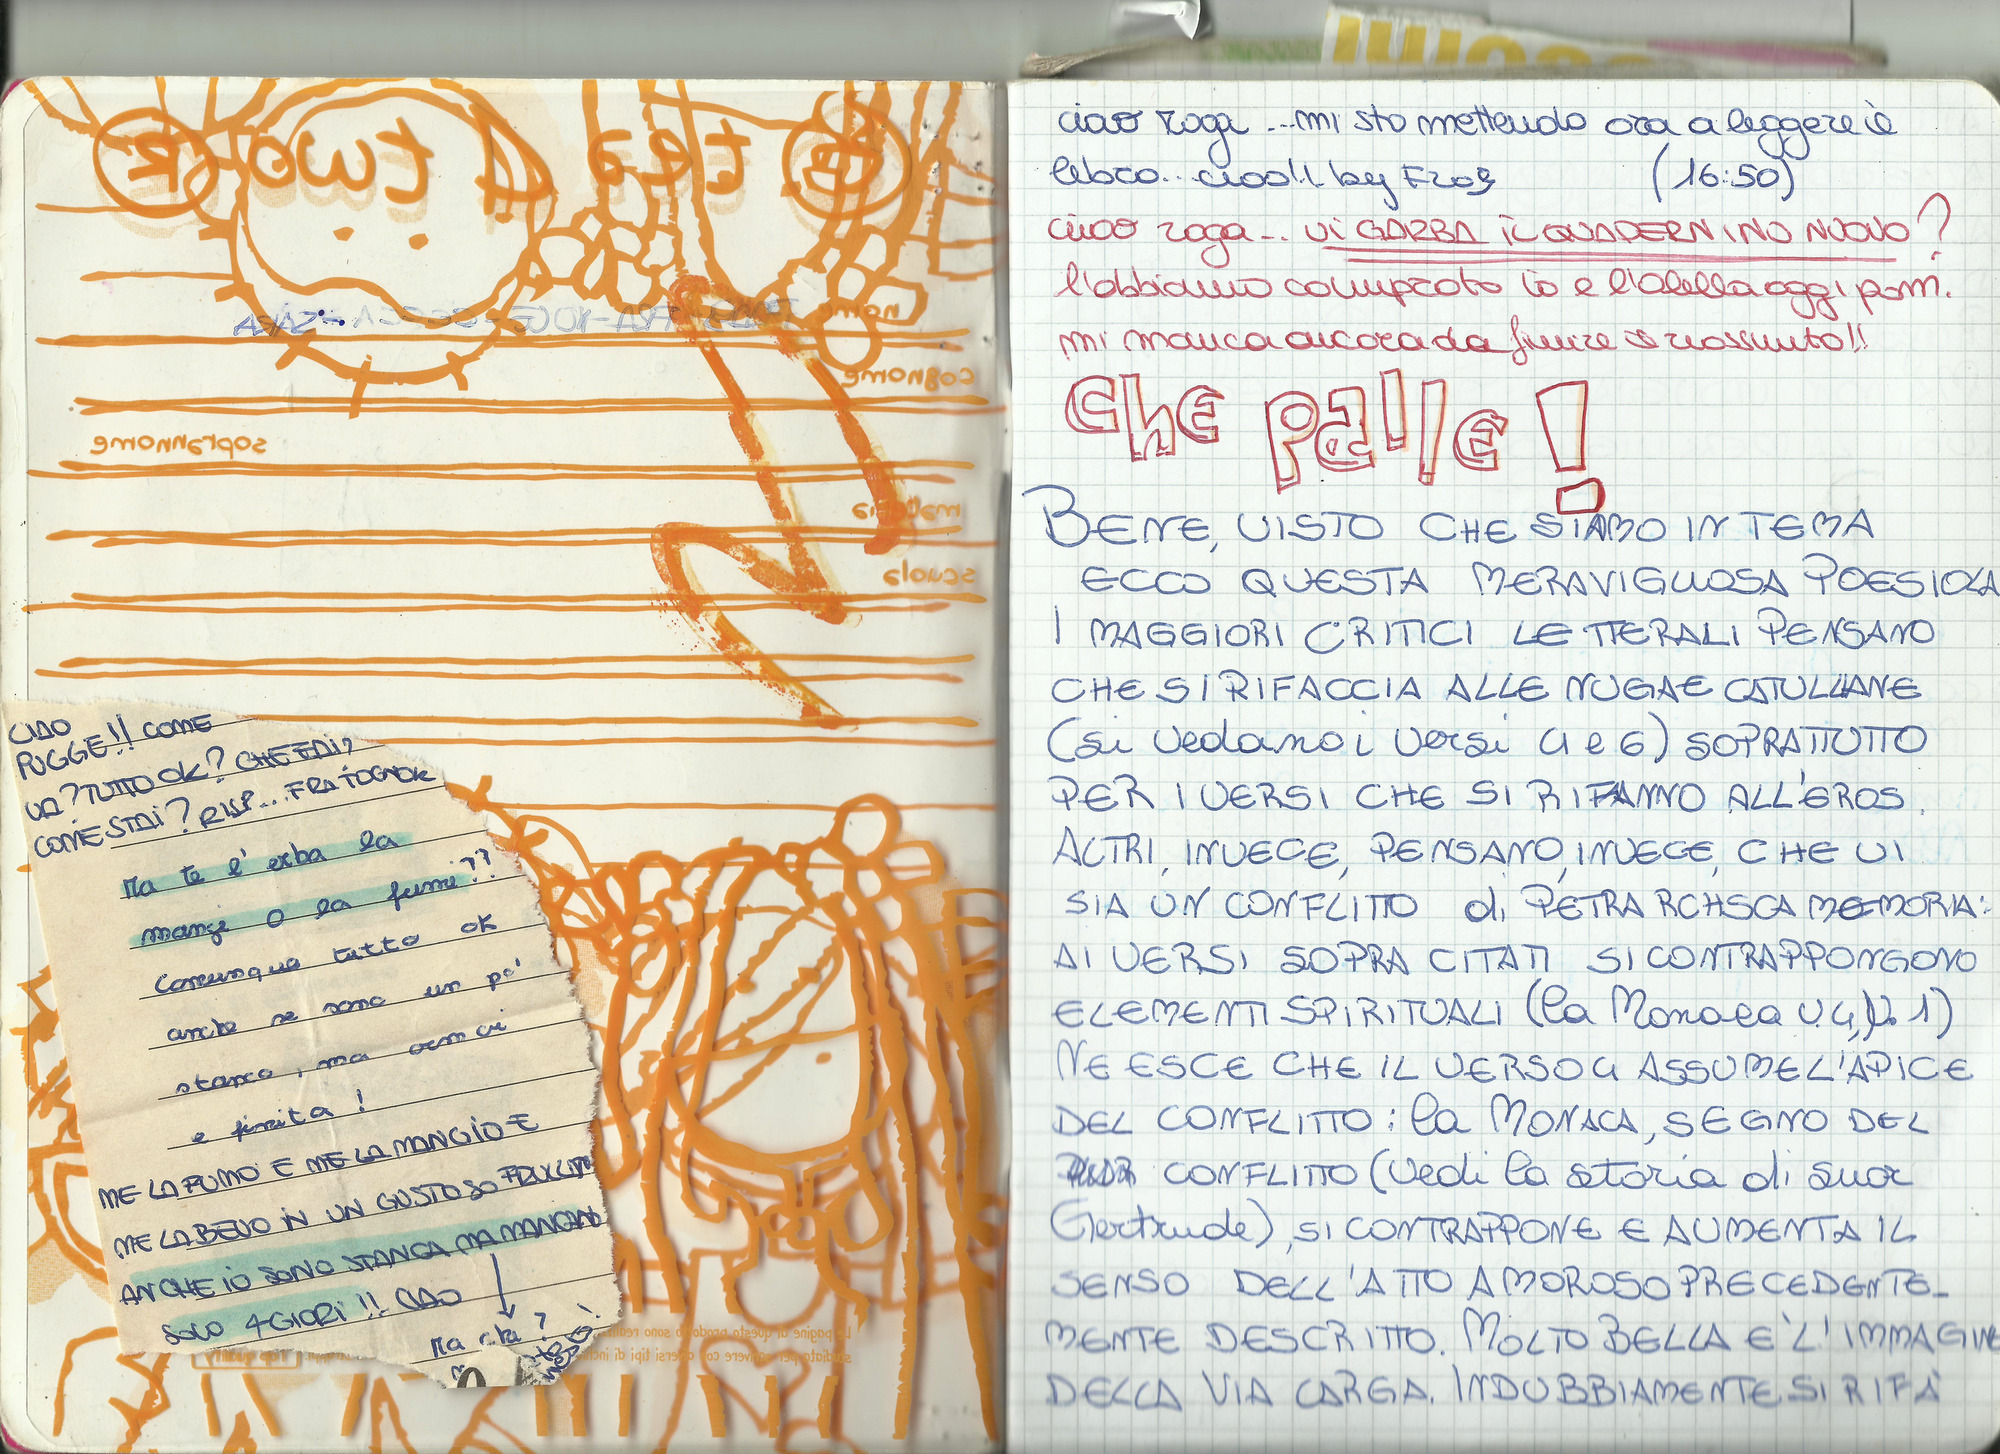 nome
cognome
soprannome
materia
scuola
CIAO
PUGGE!! COME
VA? TUTTO OK? CHE FAI?
COME STAI? RISP... FRA TOGNOK
Ma te l'erba la
mangi o la fumi??
Comunque tutto ok
anche se sono un po'
stanca, ma ormai
è finita!
ME LA FUMO E ME LA MANGIO E
ME LA BEVO IN UN GUSTOSO FRULLATO
ANCHE IO SONO STANCA MA MANCANO
SOLO 4 GIORI!! CIAO
Ma chi?
ciao raga ...mi sto mettendo ora a leggere il
libro.. ciao!! by Frog (16:50)
ciao raga.. VI GARBA IL QUADERNINO NUOVO?
l'abbiamo comprato io e l'Alella oggi pom.
mi manca ancora da finire il riassunto!!
Che palle!
BENE, VISTO CHE SIAMO IN TEMA
ECCO QUESTA MERAVIGLIOSA POESIOLA
I MAGGIORI CRITICI LETTERALI PENSANO
CHE SI RIFACCIA ALLE NUGAE CATULLIANE
(si vedano i versi 4 e 6) SOPRATTUTTO
PER I VERSI CHE SI RIFANNO ALL'EROS.
ALTRI, INVECE, PENSANO, INVECE, CHE VI
SIA UN CONFLITTO di PETRARCHSCA MEMORIA:
AI VERSI SOPRA CITATI SI CONTRAPPONGONO
ELEMENTI SPIRITUALI (la Monaca v. 4, p. 1)
NE ESCE CHE IL VERSO 4 ASSUME L'APICE
DEL CONFLITTO: la MONACA, SEGNO DEL
CONFLITTO (vedi la storia di suor
Gertrude), SI CONTRAPPONE E AUMENTA IL
SENSO DELL'ATTO AMOROSO PRECEDENTE-
MENTE DESCRITTO. MOLTO BELLA E' L'IMMAGINE
DELLA VIA LARGA. INDUBBIAMENTE SI RIFÀ